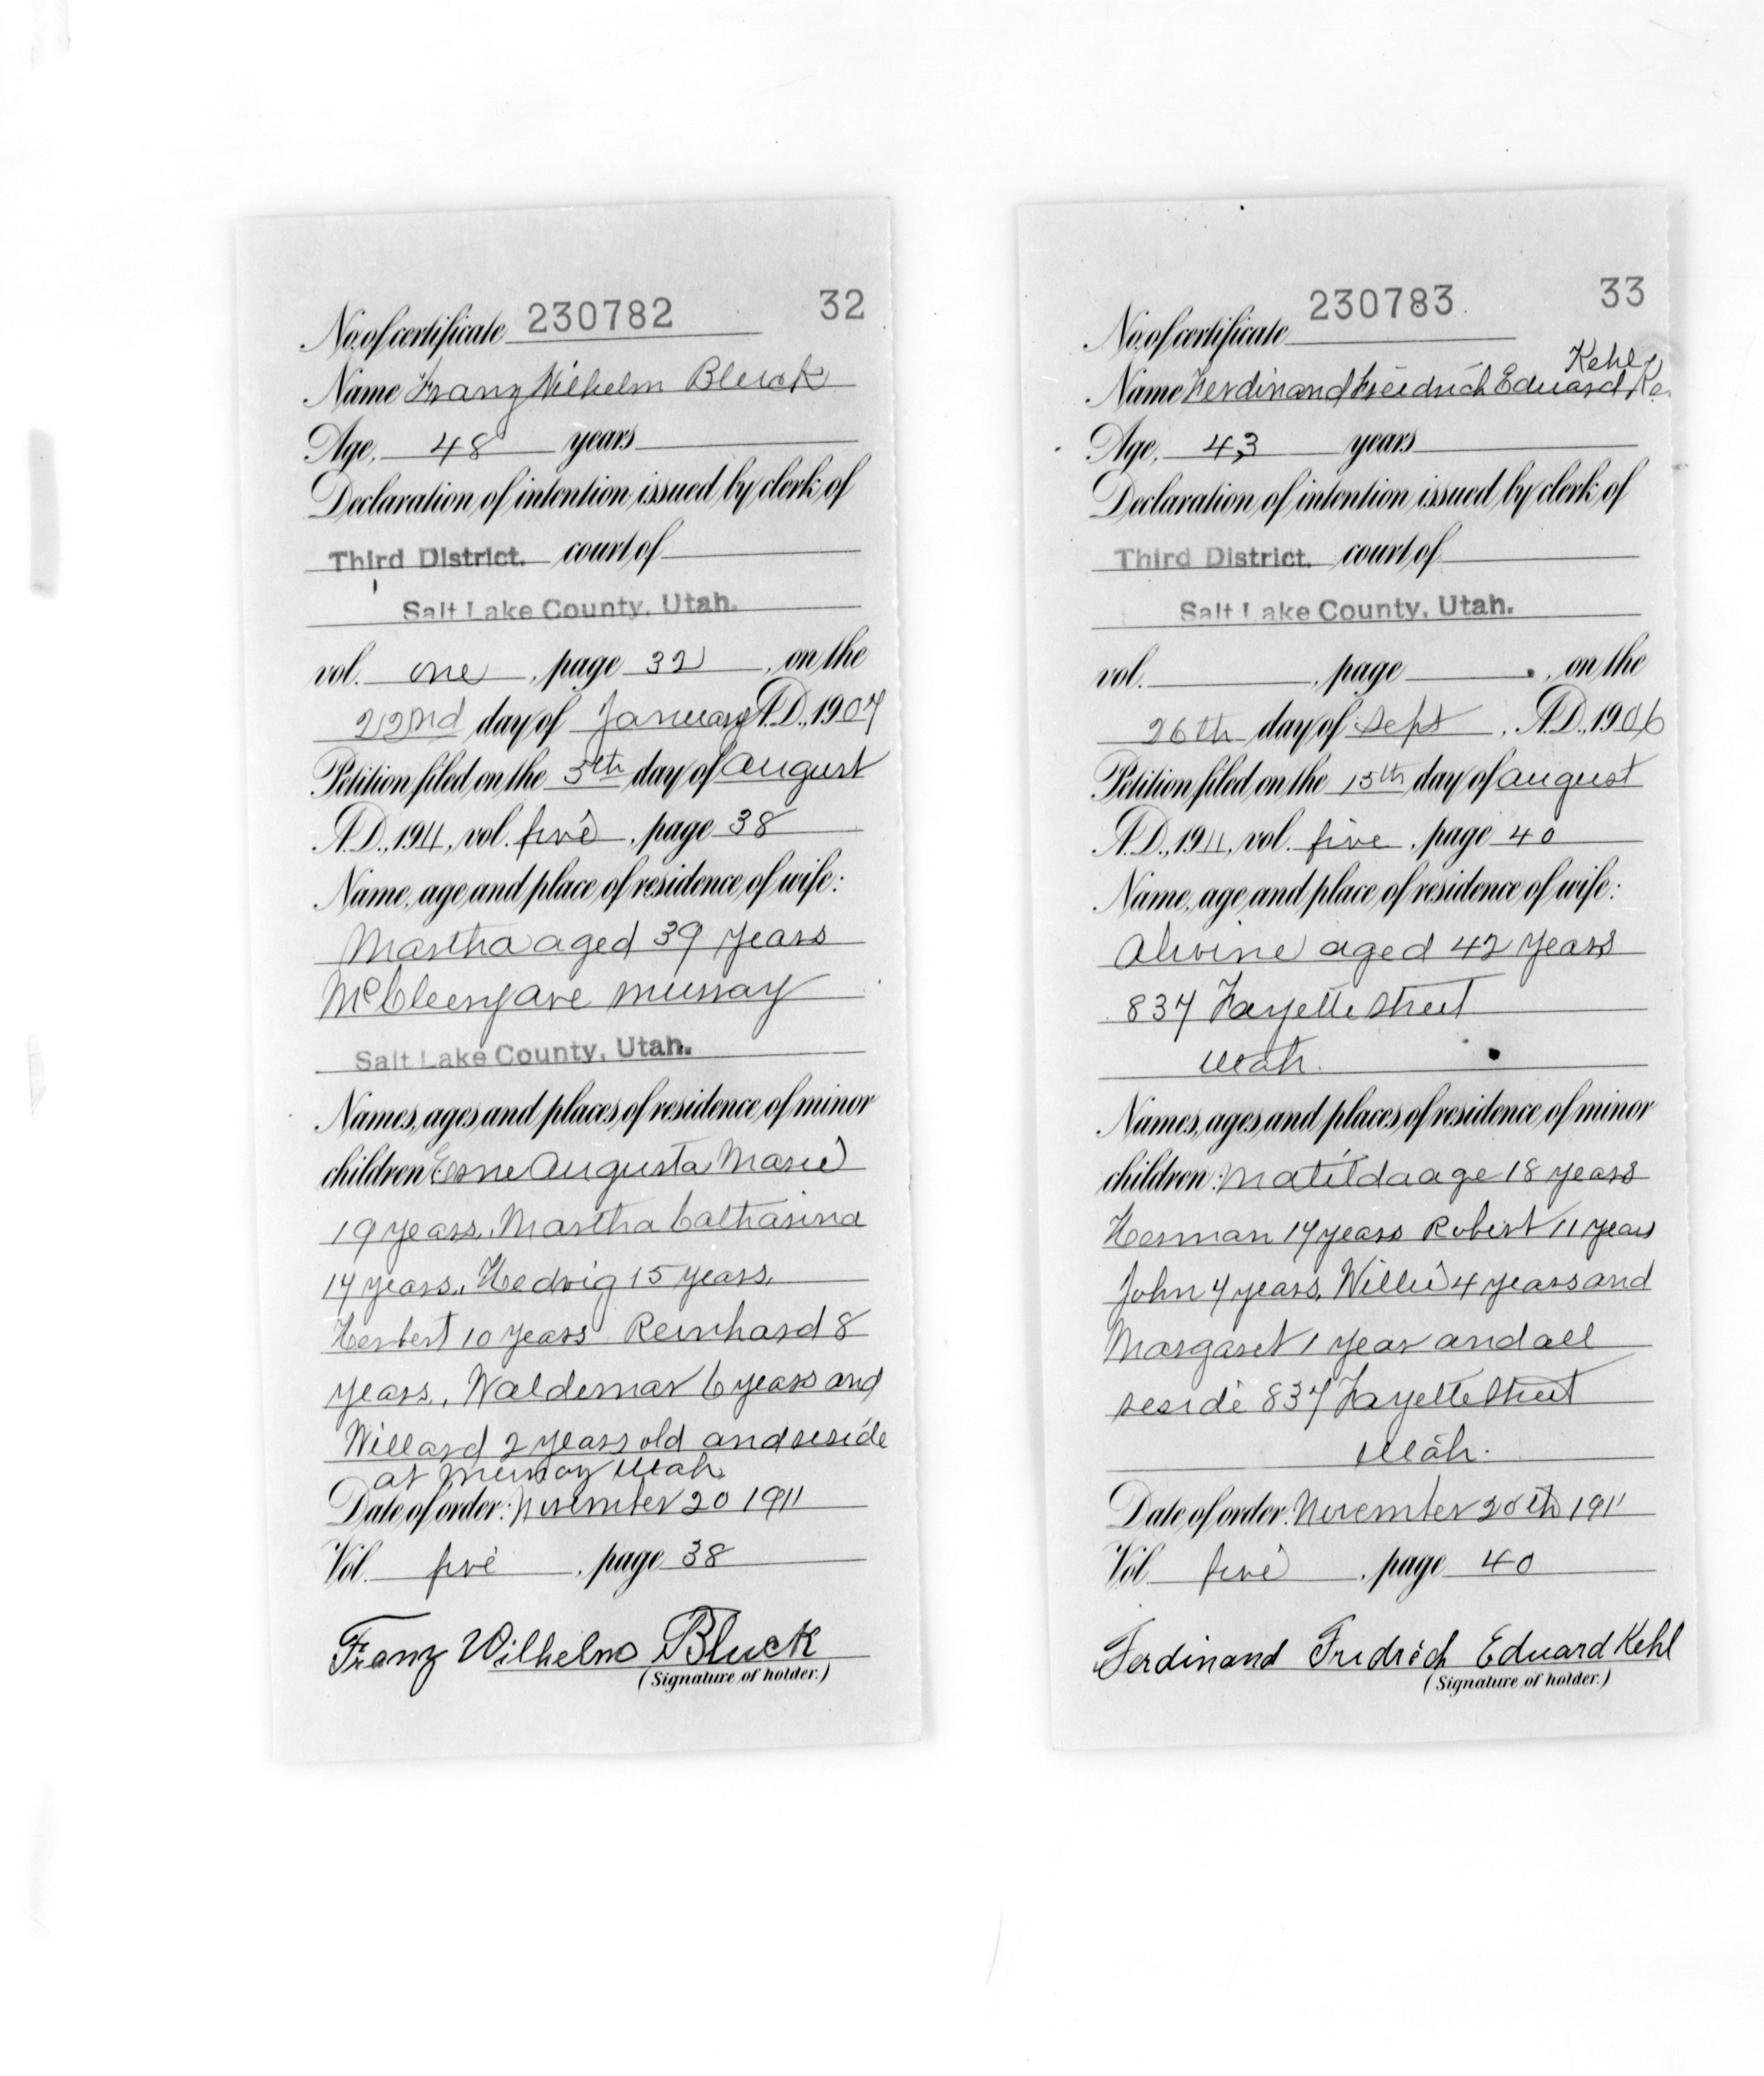 No. of certificate 230782 32
Name Franz Wilhelm Bluck
Age, 48 years
Declaration of intention issued by clerk of
Third District. court of
Salt Lake County, Utah.
vol. one, page 32, on the
22nd day of January A.D., 1907
Petition filed on the 5th day of August
A.D., 1911, vol. five, page 38
Name, age and place of residence of wife:
Martha aged 39 years
McCleery ave Murray
Salt Lake County, Utah.
Names, ages and places of residence of minor
children Erne Augusta Marie
19 years, Martha Catharina
17 years, Hedwig 15 years,
Herbert 10 years Reinhard 8
years, Waldemar 6 years and
Willard 2 years old and reside
at Murray Utah.
Date of order: November 20 1911
Vol. five, page 38
Franz Wilhelm Bluck
(Signature of holder.)
No. of certificate 230783 33
Kehl
Name Ferdinand Freidrich Eduard Ke
Age, 43 years
Declaration of intention issued by clerk of
Third District. court of
Salt Lake County, Utah.
vol. , page , on the
26th day of Sept, A.D., 1906
Petition filed on the 15th day of August
A.D., 1911, vol. five, page 40
Name, age and place of residence of wife:
Alwine aged 42 years
837 Fayette Street
Utah.
Names, ages and places of residence of minor
children: Matilda age 18 years
Herman 17 years Robert 11 years
John 7 years, Willie 4 years and
Margaret 1 year and all
reside 837 Fayette Street
Utah.
Date of order: November 20th 1911
Vol. five, page 40
Ferdinand Fridrich Eduard Kehl
(Signature of holder.)